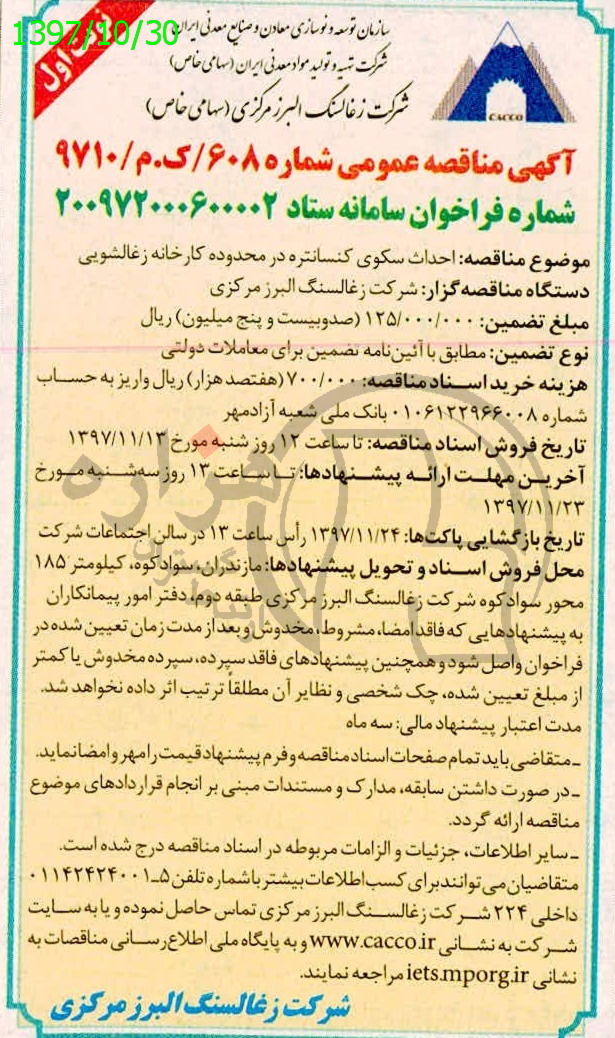 1397/10/30
نوبت اول
سازمان توسعه و نوسازی معادن و صنایع معدنی ایران
شرکت تهیه و تولید مواد معدنی ایران (سهامی خاص)
شرکت زغالسنگ البرز مرکزی (سهامی خاص)
CACCO
آگهی مناقصه عمومی شماره ۶۰۸/ک.م/۹۷۱۰
شماره فراخوان سامانه ستاد ۲۰۰۹۷۲۰۰۰۶۰۰۰۰۲
موضوع مناقصه: احداث سکوی کنسانتره در محدوده کارخانه زغالشویی
دستگاه مناقصه‌گزار: شرکت زغالسنگ البرز مرکزی
مبلغ تضمین: ۱۲۵/۰۰۰/۰۰۰ (صدوبیست و پنج میلیون) ریال
نوع تضمین: مطابق با آئین‌نامه تضمین برای معاملات دولتی
هزینه خرید اسـناد مناقصه: ۷۰۰/۰۰۰ (هفتصد هزار) ریال واریز به حسـاب
شماره ۰۱۰۶۱۲۲۹۶۶۰۰۸ بانک ملی شعبه آزادمهر
تاریخ فروش اسناد مناقصه: تا ساعت ۱۲ روز شنبه مورخ ۱۳۹۷/۱۱/۱۳
آخریـن مهلـت ارائـه پیشـنهادها: تـا سـاعت ۱۳ روز سه‌شـنبه مـورخ
۱۳۹۷/۱۱/۲۳
تاریخ بازگشایی پاکت‌ها: ۱۳۹۷/۱۱/۲۴ رأس ساعت ۱۳ در سالن اجتماعات شرکت
محل فروش اسـناد و تحویل پیشنهادها: مازندران، سوادکوه، کیلومتر ۱۸۵
محور سوادکوه شرکت زغالسنگ البرز مرکزی طبقه دوم، دفتر امور پیمانکاران
به پیشنهادهایی که فاقد امضا، مشروط، مخدوش و بعد از مدت زمان تعیین شده در
فراخوان واصل شود و همچنین پیشنهادهای فاقد سپرده، سپرده مخدوش یا کمتر
از مبلغ تعیین شده، چک شخصی و نظایر آن مطلقاً ترتیب اثر داده نخواهد شد.
مدت اعتبار پیشنهاد مالی: سه ماه
ـ متقاضی باید تمام صفحات اسناد مناقصه و فرم پیشنهاد قیمت را مهر و امضا نماید.
ـ در صورت داشتن سابقه، مدارک و مستندات مبنی بر انجام قراردادهای موضوع
مناقصه ارائه گردد.
ـ سایر اطلاعات، جزئیات و الزامات مربوطه در اسناد مناقصه درج شده است.
متقاضیان می‌توانند برای کسب اطلاعات بیشتر با شماره تلفن ۵ـ۰۱۱۴۲۴۲۴۰۰۱
داخلی ۲۲۴ شـرکت زغالسـنگ البرز مرکزی تماس حاصل نموده و یا به سـایت
شـرکت به نشـانی www.cacco.ir و به پایگاه ملی اطلاع‌رسـانی مناقصات به
نشانی iets.mporg.ir مراجعه نمایند.
شرکت زغالسنگ البرز مرکزی
هزاره